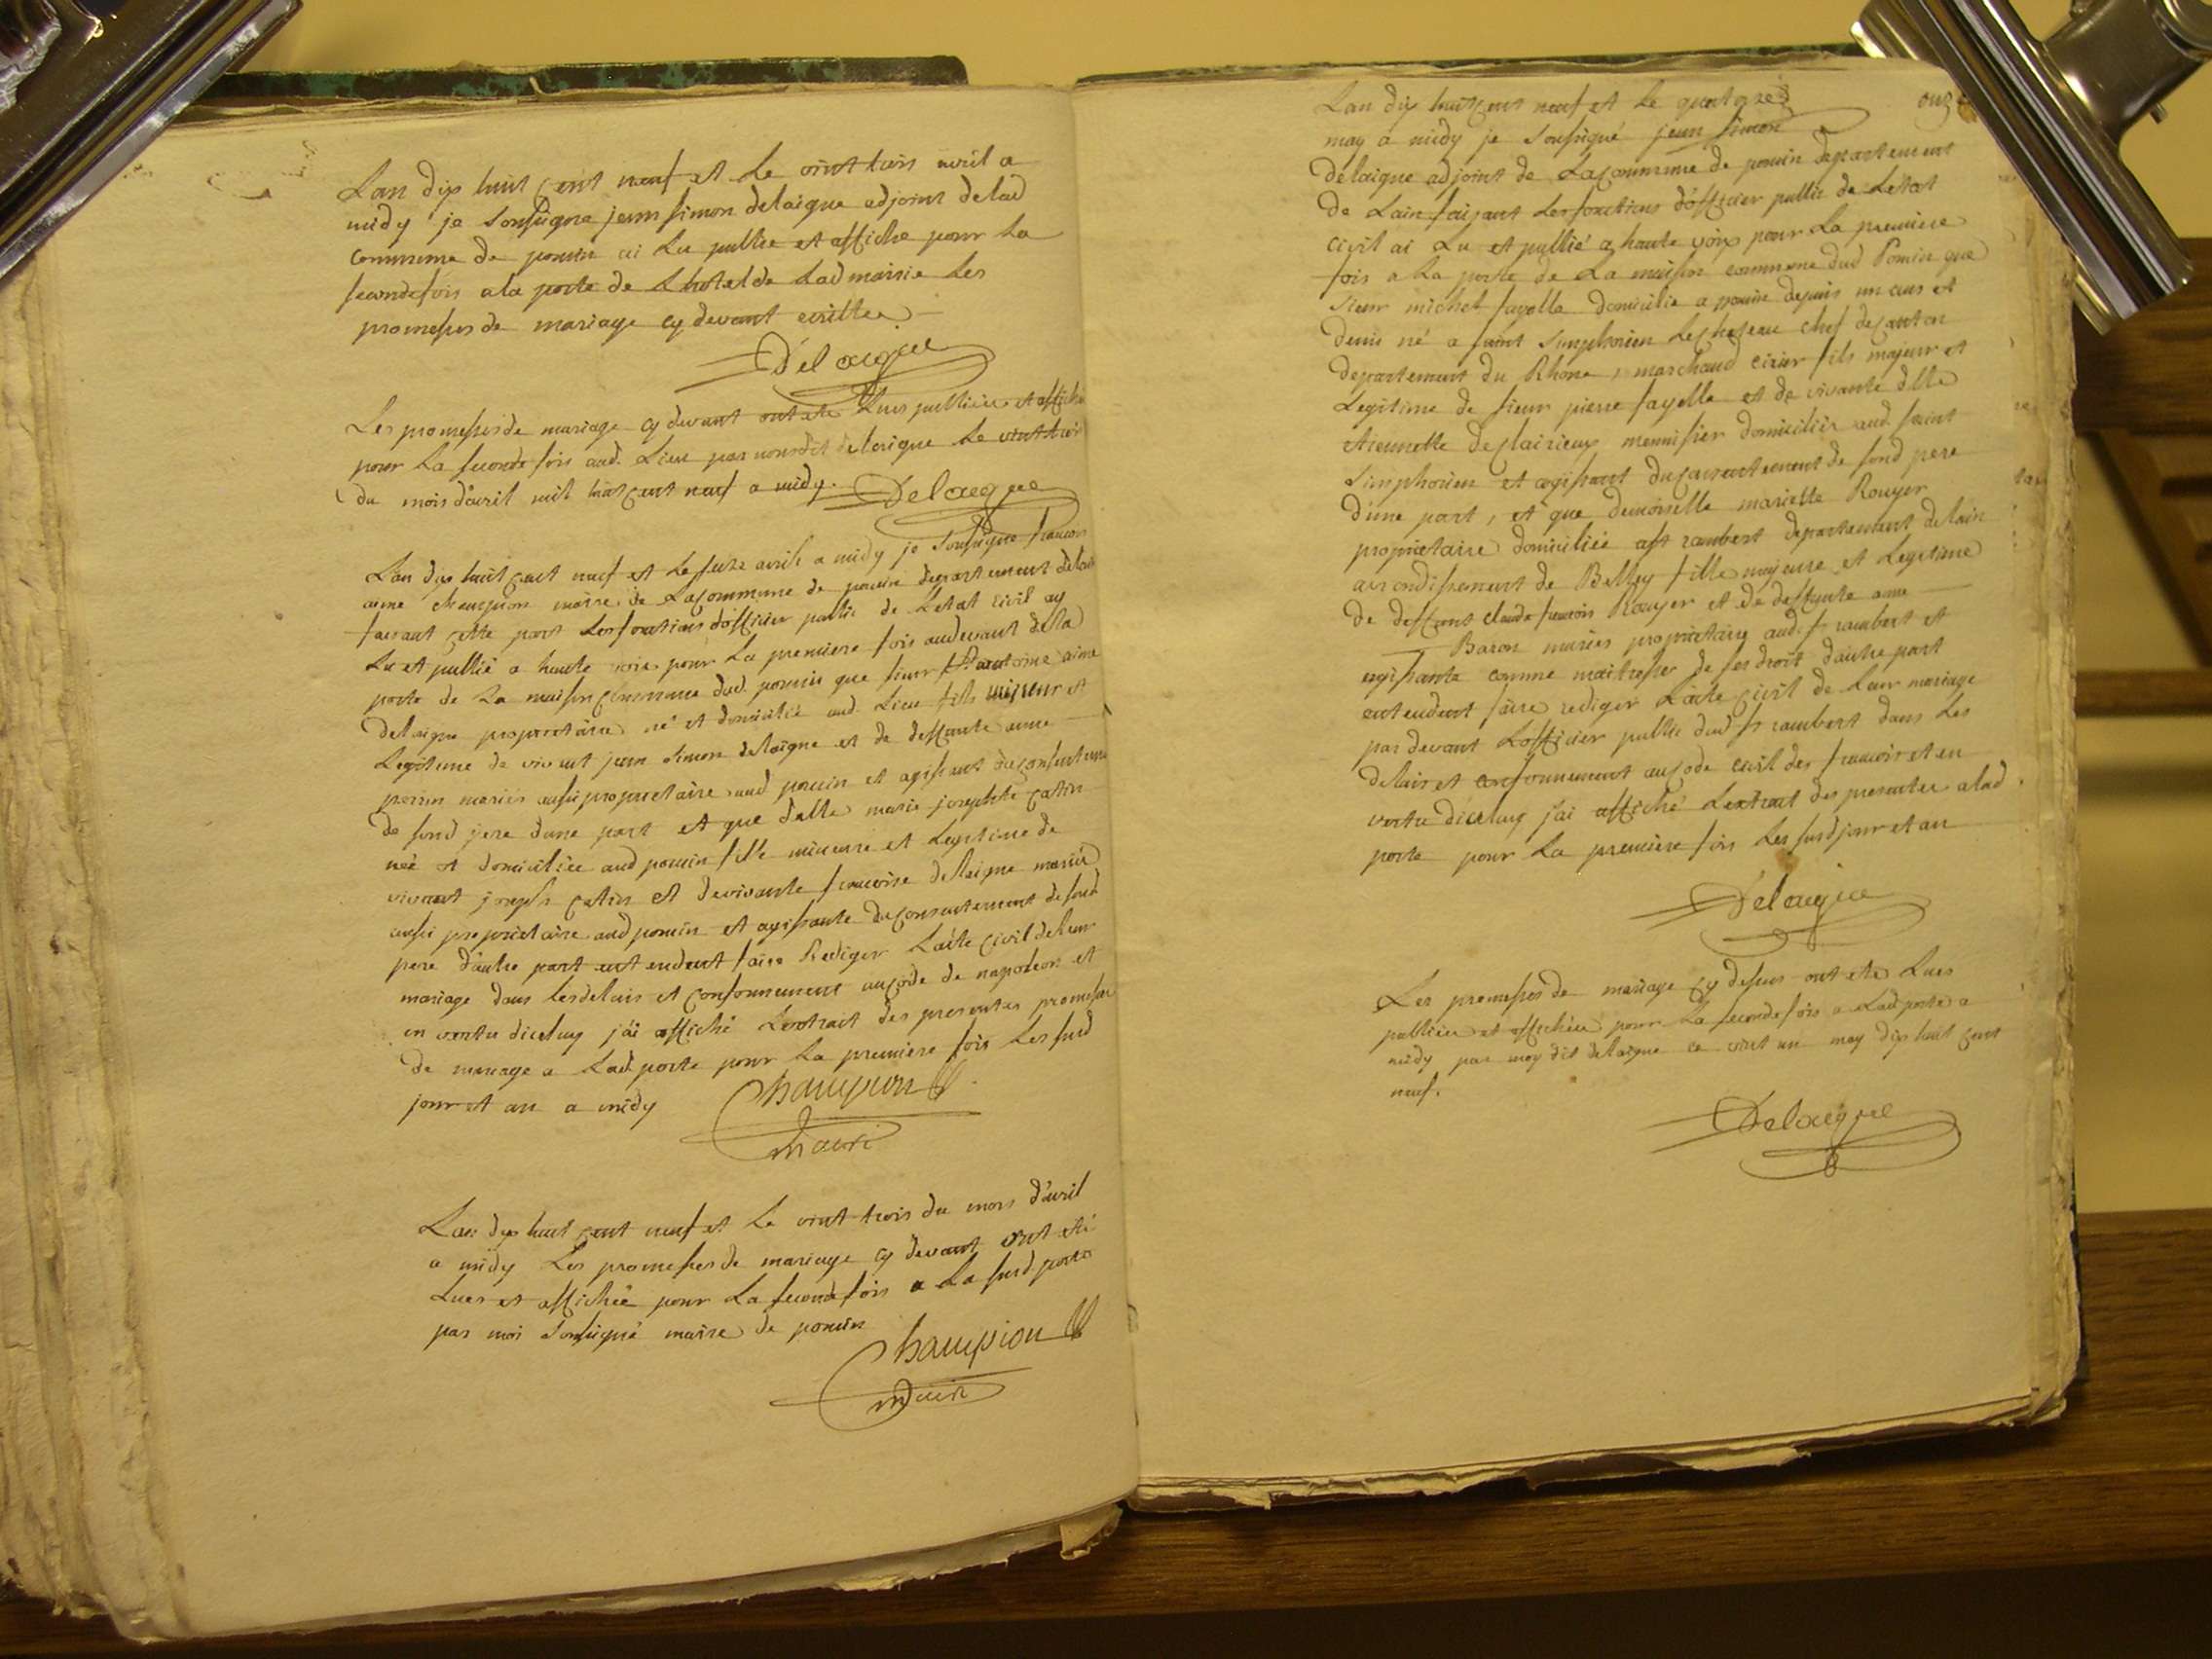 Lan dix huit cent neuf et Le vint trois avril a
midy je Soussigne jean simon delaigne adjoint de lad
commune de poncin ai Lu publie et affiche pour La
seconde fois a la porte de Lhotel de Lad mairie Les
promesses de mariage cy devant ecrittes
Delaigue
Les promesses de mariage cy devant ont ete Lues publiées et affiché
pour La seconde fois aud. Lieu par nousdit delaigue Le vint trois
du mois d'avril mil huit cent neuf a midy. Delaigue
Lan dix huit cent neuf et Le seize avril a midy je Soussigne francois
aimé champion maire de La commune de poncin departement de lain
faisant cette part Les fonctions d'officier public de Letat civil ay
Lu et publié a haute voix pour La premiere fois audevant de la
porte de La maison commune dud. poncin que sieur antoine aimé
delaigue proprietaire né et domicilié aud Lieu fils mineur et
Legitime de vivant jean simon delaigue et de deffunte anne
perrin mariés aussi proprietaire aud poncin et agissant du consenteme
de sond pere dune part et que delle marie josephte catin
née et domiciliée aud poncin fille mineure et Legitime de
vivant joseph catin et de vivante francoise delaigue mariés
aussi proprietaire aud poncin et agissante du consentement de sond
pere d'autre part entendent faire Rediger Lacte civil de leur
mariage dans les delais et conformement au code de napoleon et
en vertu diceluy j'ai affiché Lextrait des presentes promesses
de mariage a Lad porte pour La premiere fois Les sud
jour et an a midy Champion
maire
Lan dix huit cent neuf et Le vint trois du mois d'avril
a midy Les promesses de mariage cy devant ont été
Lues et affichée pour La seconde fois a La sud. porte
par moi Soussigné maire de poncin
Champion
maire
onz
Lan dix huit cent neuf et Le quatorze
may a midy je Soussigné jean simon
delaigue adjoint de La commune de poncin departement
de Lain faisant Les fonctions d'officier public de Letat
civil ai Lu et publié a haute voix pour La premiere
fois a La porte de La maison commune dud Poncin que
sieur michel fayolle domicilie a poncin depuis un ans et
demi né a saint simphorien Le chateau chef de canton
departement du Rhone, marchand cirier fils majeur et
Legitime de sieur pierre fayolle et de vivante dlle
etiennette desplaicieux mennisier domiciliés aud. saint
simphorien et agissant du consentement de sond pere
d'une part, et que demoiselle mariette Rouyer
proprietaire domiciliée a st rambert departement de lain
arrondissement de Belley fille majeure et Legitime
de deffunt claude francois Rouyer et de deffunte anne
Baron mariés proprietaire aud. st rambert et
agissante comme maitresse de ses droit d'autre part
entendent faire rediger Lacte civil de Leur mariage
par devant Lofficier public dud st rambert dans Les
delais et conformement au code civil des francois et en
vertu diceluy j'ai affiché Lextrait des presentes a lad.
porte pour La premiere fois Les susd jour et an
Delaigue
Les promesses de mariage cy dessus ont ete Lues
publiées et affichées pour La seconde fois a Lad. porte a
midy par moy dit delaigue ce vint un may dix huit cent
neuf.
Delaigue